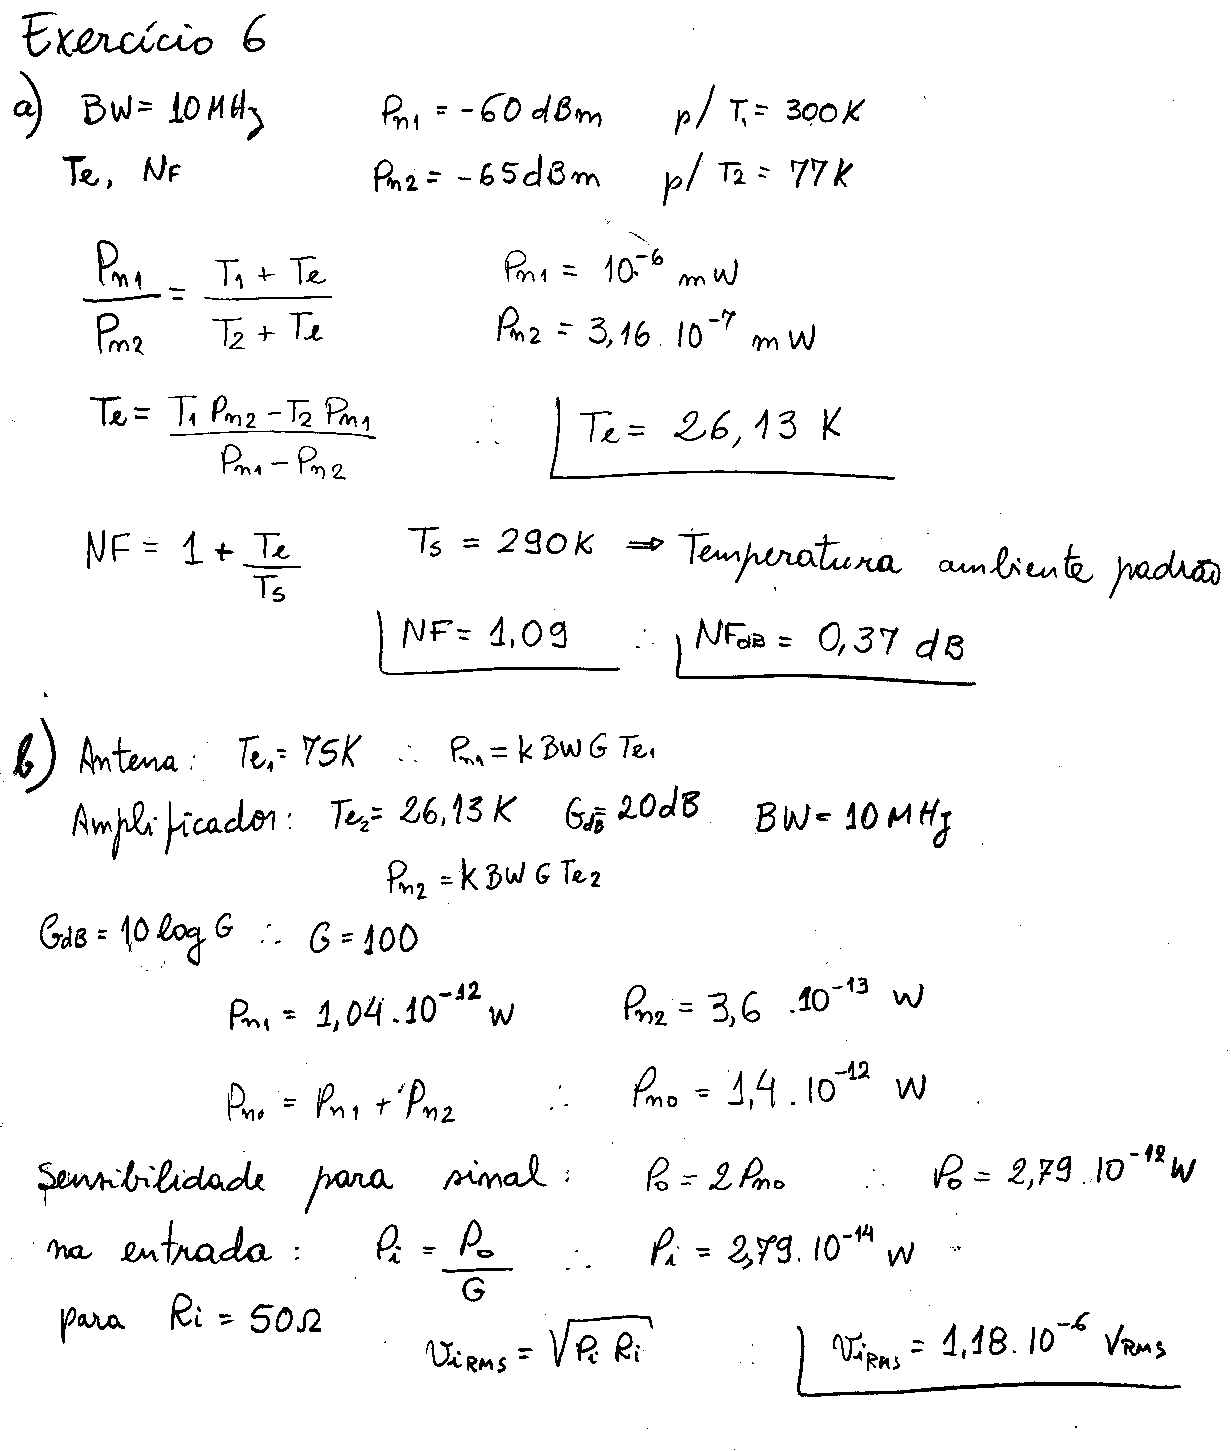 Exercício 6
a) BW = 10 MHz Pn1 = -60 dBm p/ T1 = 300K
Te, NF Pn2 = -65 dBm p/ T2 = 77K
Pn1/Pn2 = (T1 + Te)/(T2 + Te) Pn1 = 10^-6 mW
Pn2 = 3,16 . 10^-7 mW
Te = (T1 Pn2 - T2 Pn1)/(Pn1 - Pn2) ∴ Te = 26,13 K
NF = 1 + Te/Ts Ts = 290K ⇒ Temperatura ambiente padrão
NF = 1,09 ∴ NFdB = 0,37 dB
b) Antena: Te1 = 75K ∴ Pn1 = k BW G Te1
Amplificador: Te2 = 26,13 K GdB = 20dB BW = 10 MHz
Pn2 = k BW G Te2
GdB = 10 log G ∴ G = 100
Pn1 = 1,04 . 10^-12 W Pn2 = 3,6 . 10^-13 W
Pno = Pn1 + Pn2 ∴ Pno = 1,4 . 10^-12 W
Sensibilidade para sinal: Po = 2 Pno ∴ Po = 2,79 . 10^-12 W
na entrada: Pi = Po/G ∴ Pi = 2,79 . 10^-14 W
para Ri = 50Ω
ViRMS = √(Pi Ri) ∴ ViRMS = 1,18 . 10^-6 VRMS